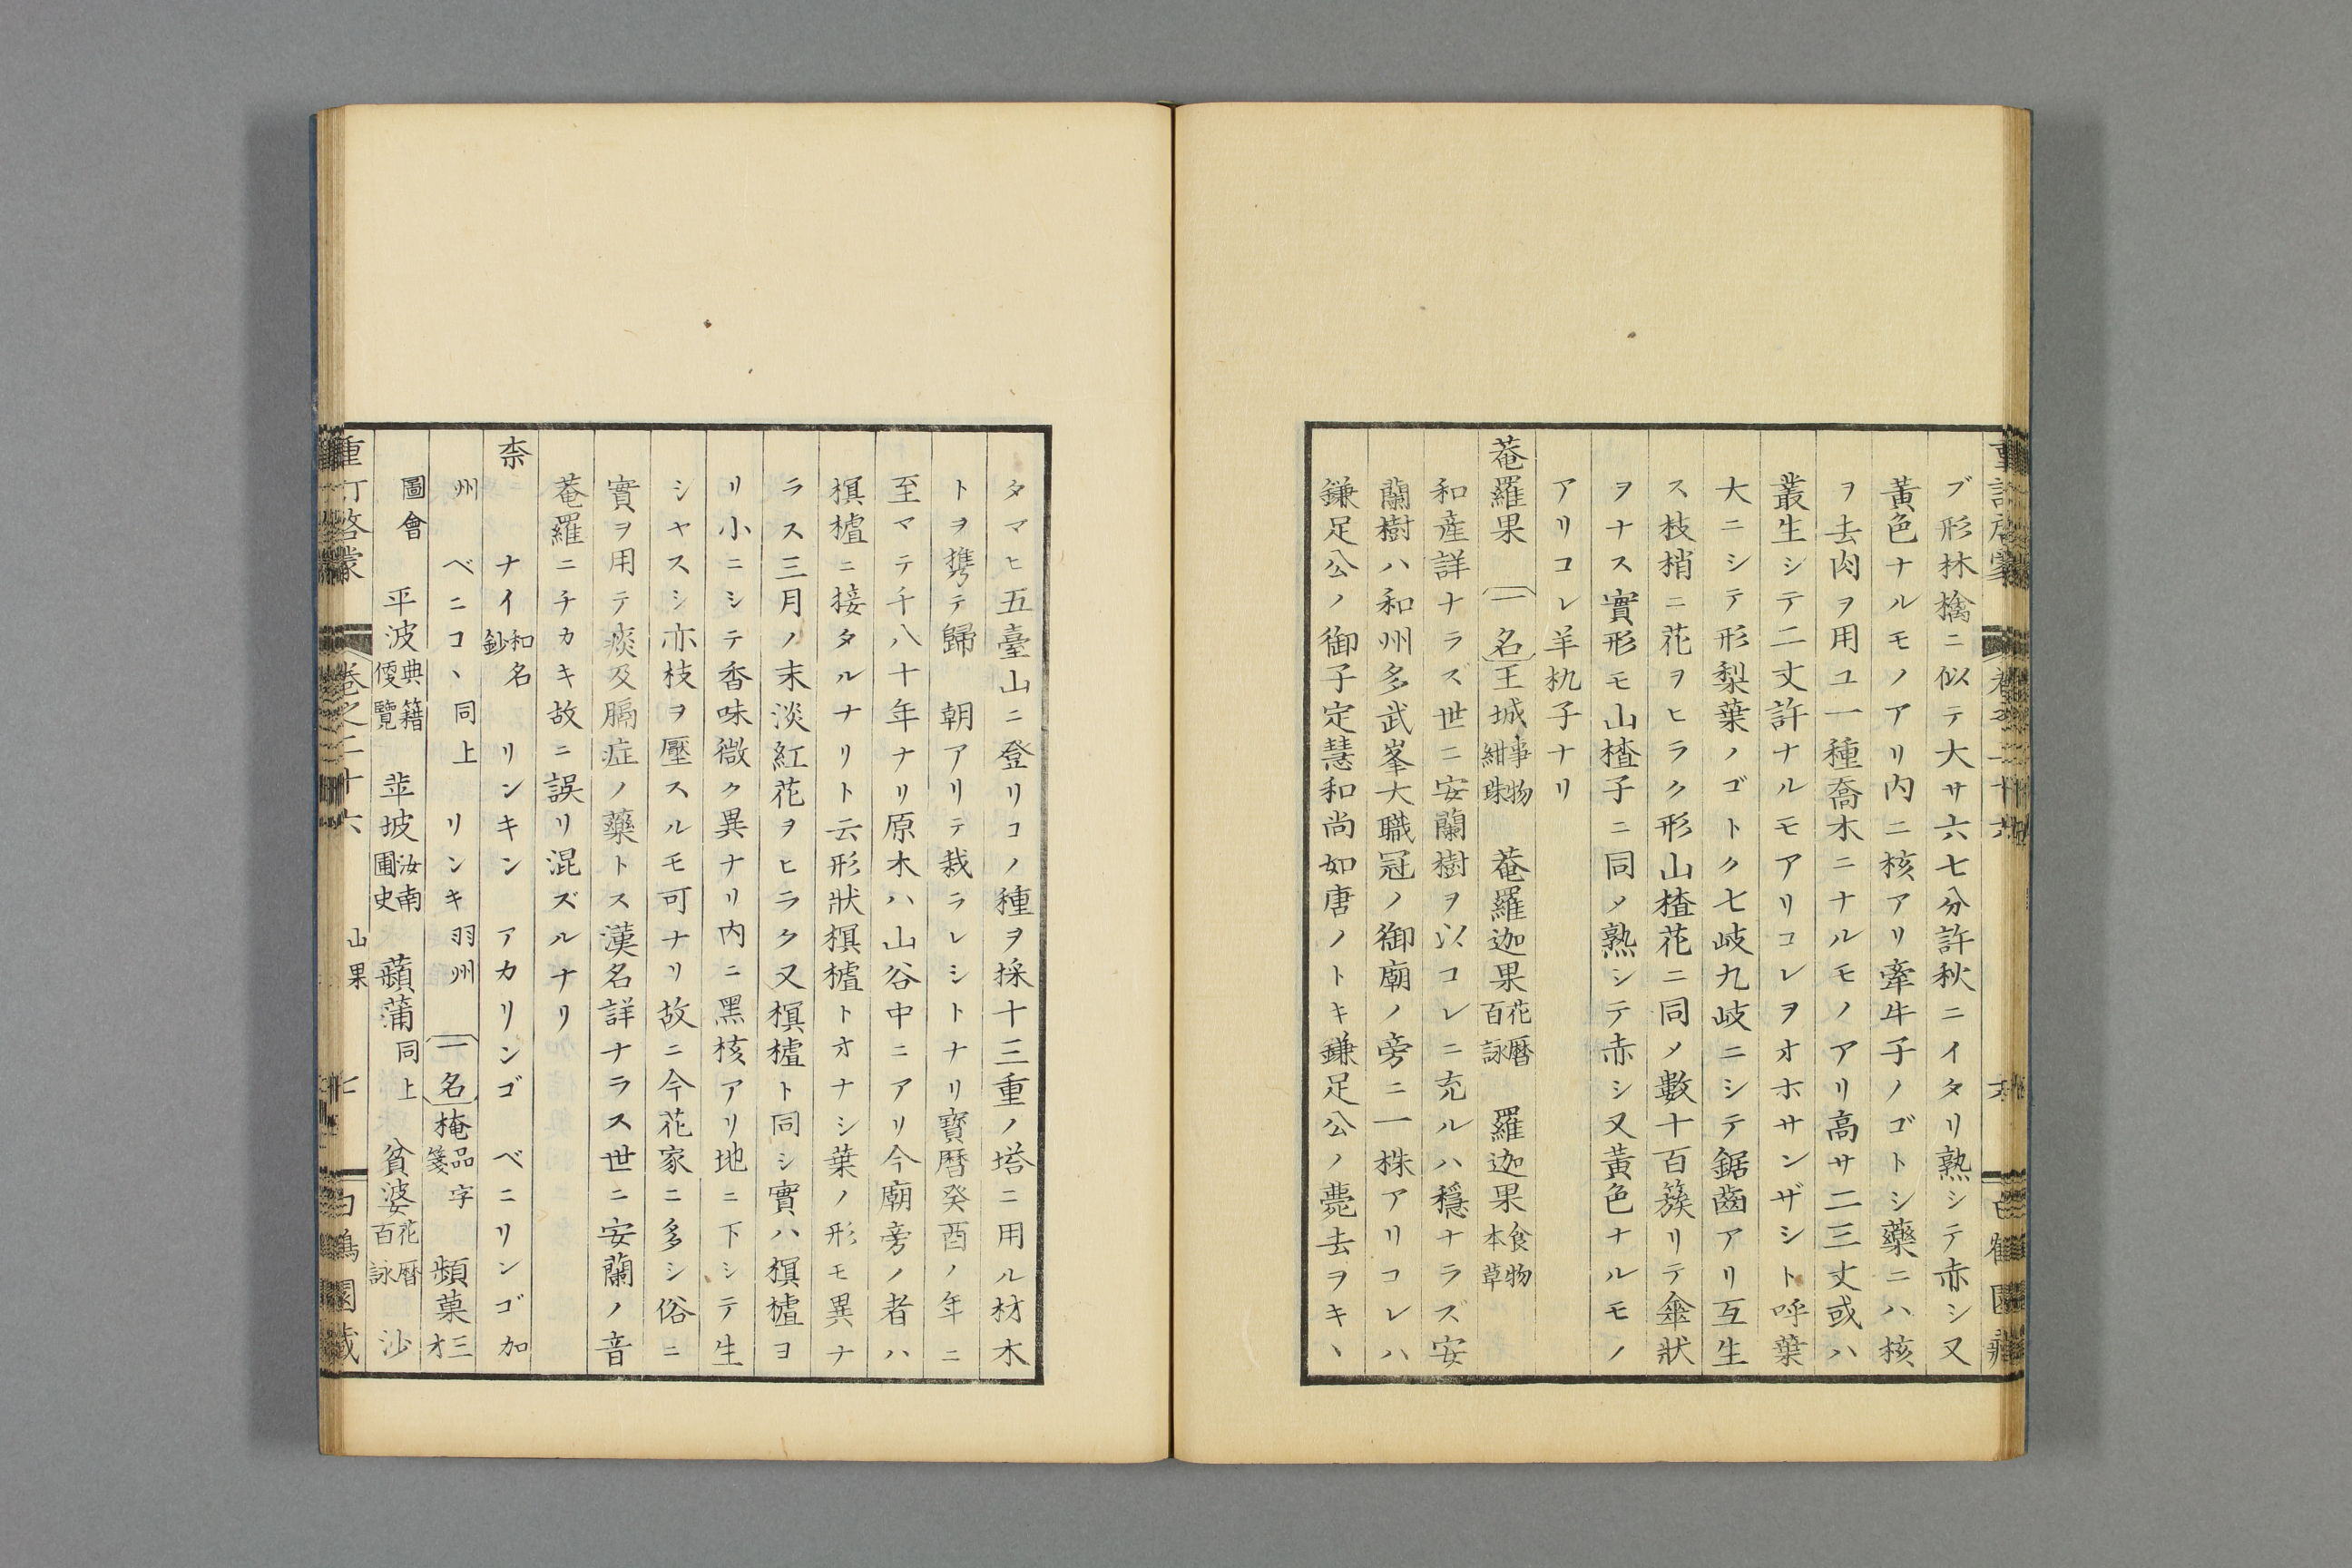 ブ形林檎ニ似テ大サ六七分許秋ニイタリ熟シテ赤シ又
黃色ナルモノアリ内ニ核アリ牽牛子ノゴトシ藥ニハ核
ヲ去肉ヲ用ユ一種喬木ニナルモノアリ高サ二三丈或ハ
叢生シテ二丈許ナルモアリコレヲオホサンザシト呼葉
大ニシテ形梨葉ノゴトク七岐九岐ニシテ鋸齒アリ互生
ス枝梢ニ花ヲヒラク形山樝花ニ同メ數十百簇リテ傘狀
ヲナス實形モ山樝子ニ同メ熟シテ赤シ又黃色ナルモノ
アリコレ羊朹子ナリ
菴羅果 一名 王城 事物紺珠 菴羅迦果 花曆百詠 羅迦果 食物本草
和產詳ナラズ世ニ安蘭樹ヲ以コレニ充ルハ穩ナラズ安
蘭樹ハ和州多武峯大職冠ノ御廟ノ旁ニ一株アリコレハ
鎌足公ノ御子定慧和尚如唐ノトキ鎌足公ノ薨去ヲキヽ
タマヒ五臺山ニ登リコノ種ヲ採十三重ノ塔ニ用ル材木
トヲ携テ歸 朝アリテ栽ラレシトナリ寶曆癸酉ノ年ニ
至マテ千八十年ナリ原木ハ山谷中ニアリ今廟旁ノ者ハ
榠樝ニ接タルナリト云形狀榠樝トオナシ葉ノ形モ異ナ
ラス三月ノ末淡紅花ヲヒラク又榠樝ト同シ實ハ榠樝ヨ
リ小ニシテ香味微ク異ナリ内ニ黑核アリ地ニ下シテ生
シヤスシ亦枝ヲ壓スルモ可ナリ故ニ今花家ニ多シ俗ニ
實ヲ用テ痰及膈症ノ藥トス漢名詳ナラス世ニ安蘭ノ音
菴羅ニチカキ故ニ誤リ混ズルナリ
柰 ナイ 和名鈔 リンキン アカリンゴ ベニリンゴ 加
州 ベニコヽ 同上 リンキ 羽州 一名 掩 品字箋 頻菓 三才
圖會 平波 典籍便覽 苹坡 汝南圃史 蘋蒲 同上 貧婆 花曆百詠 沙
重訂啓蒙 卷之二十六 山果 七